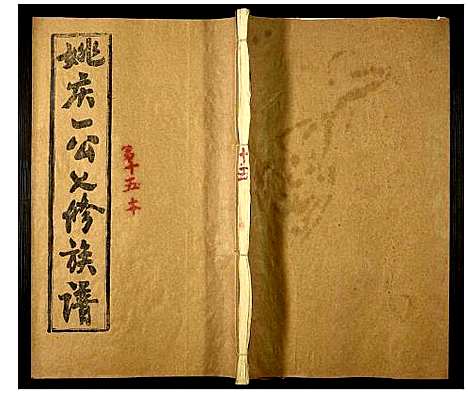 姚庆一公七修族谱
第十五本
十五